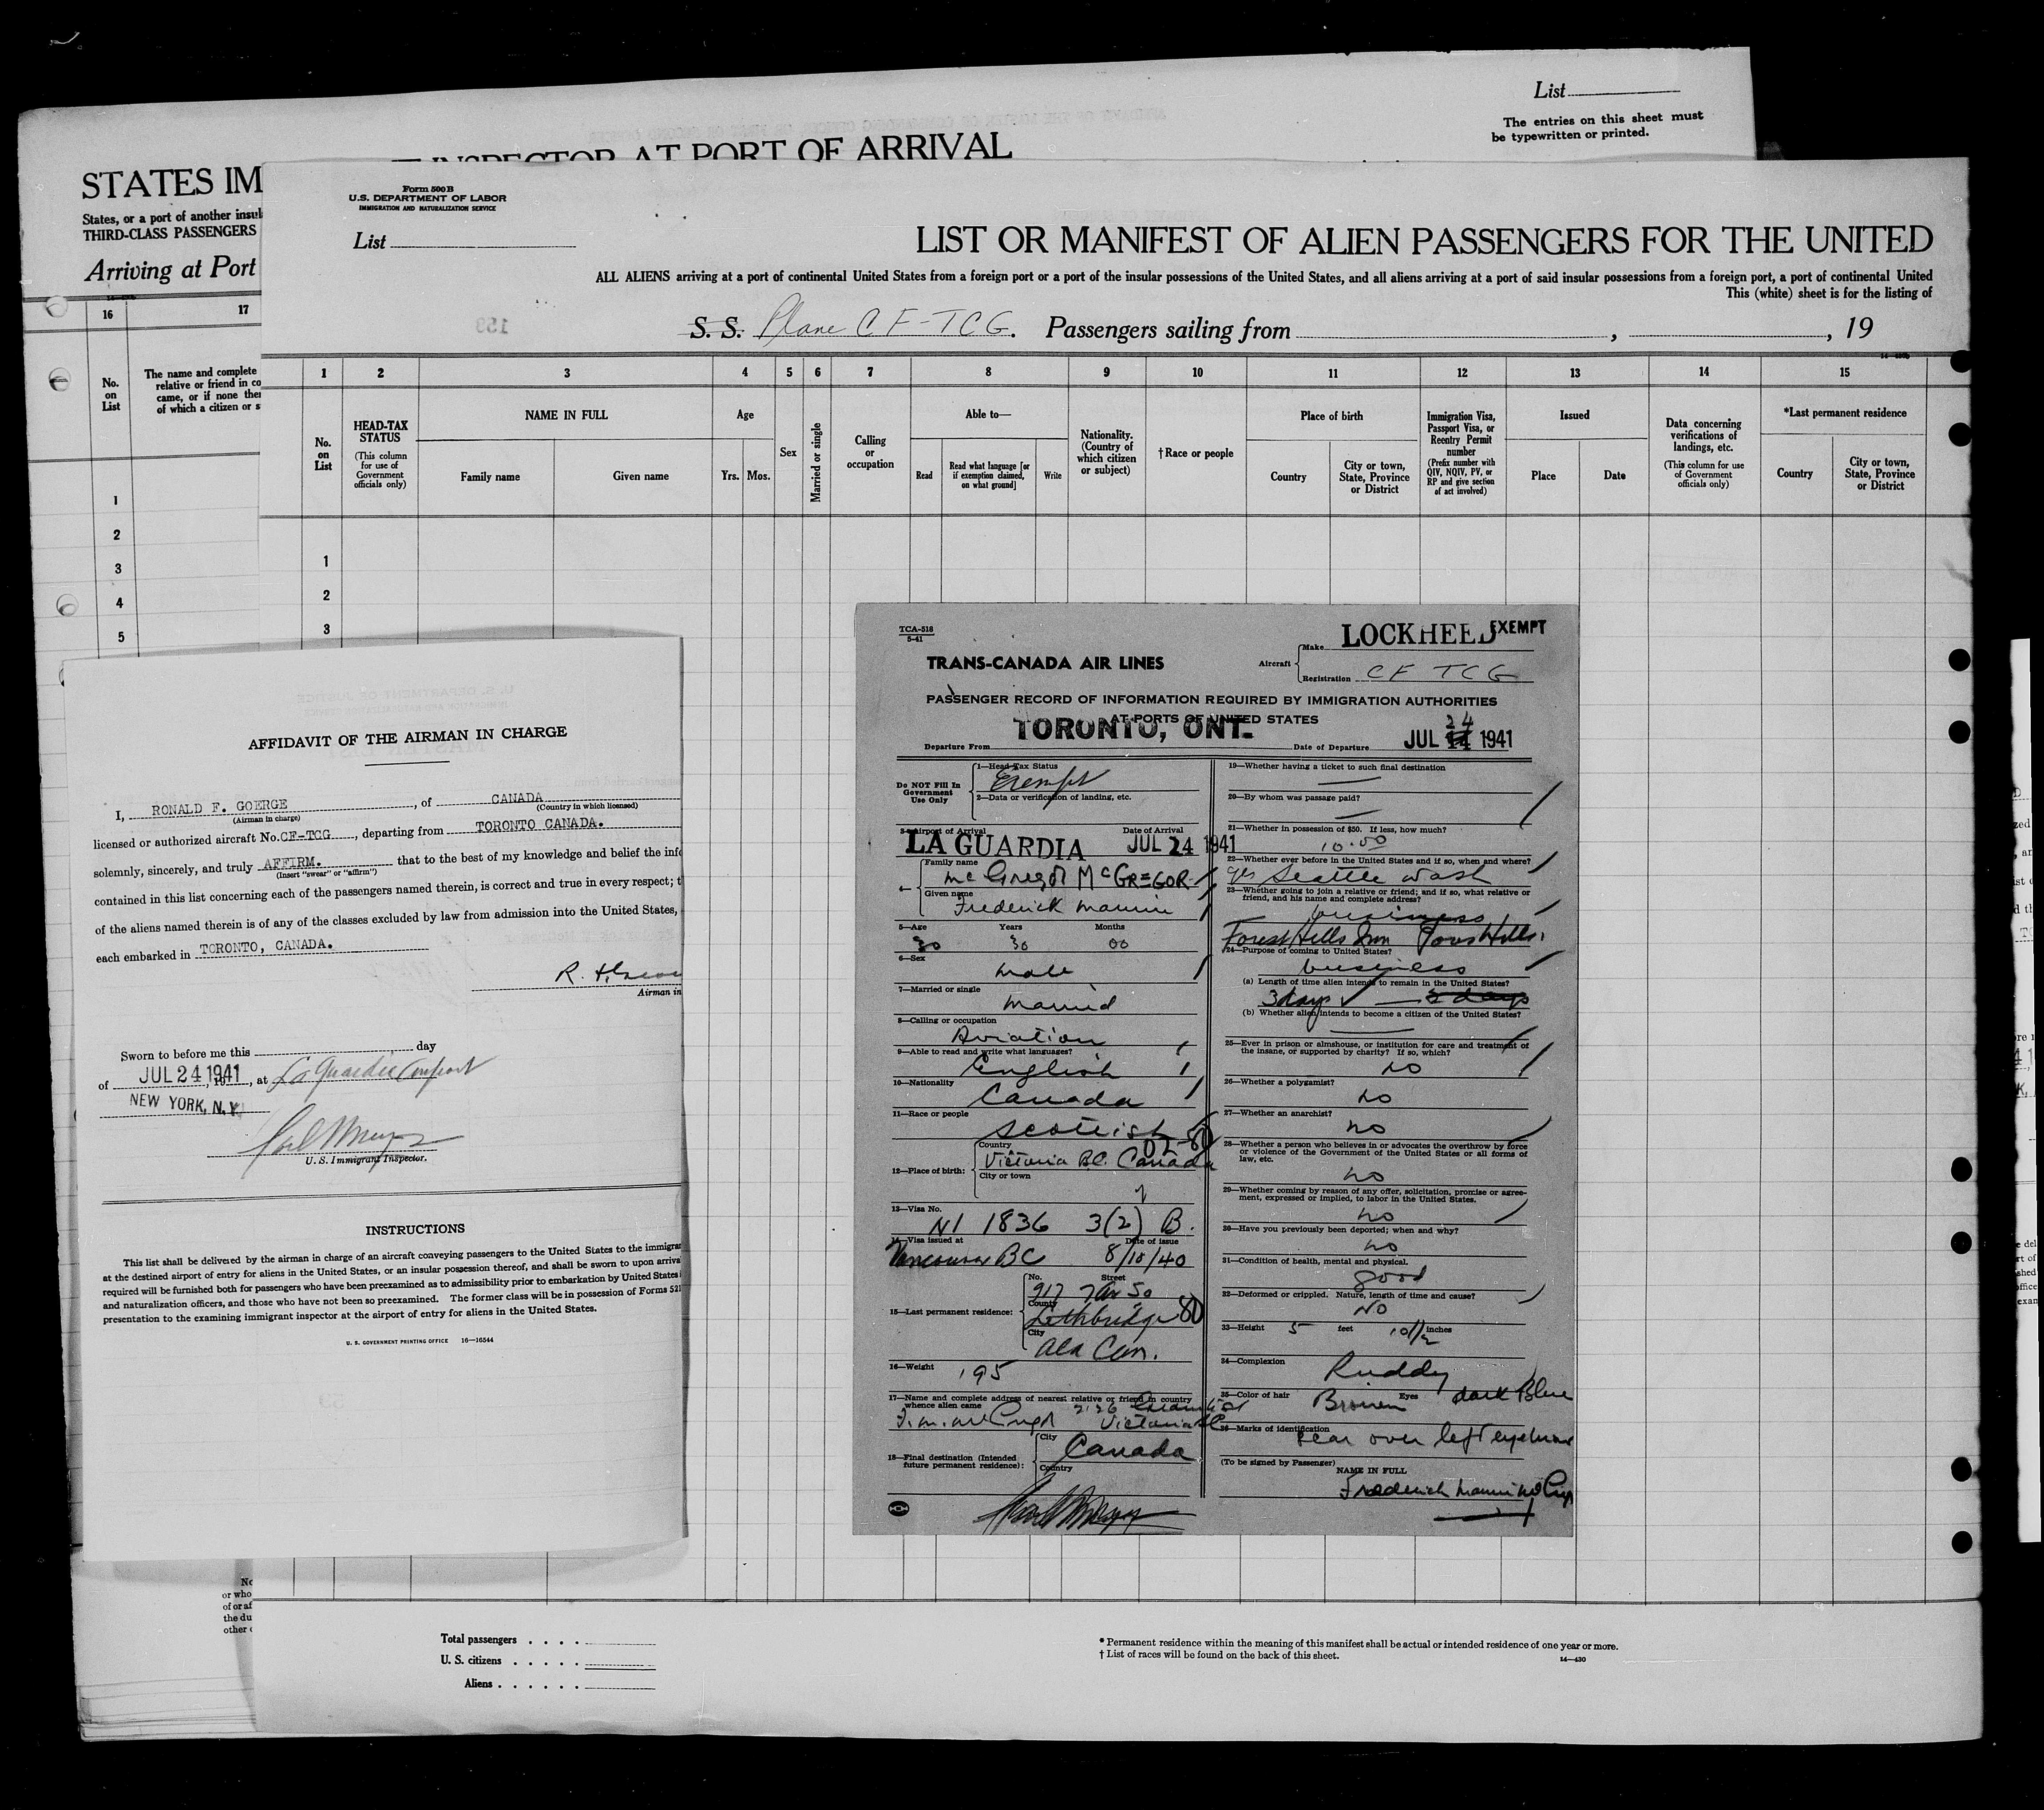 List
The entries on this sheet must
be typewritten or printed.
INSPECTOR AT PORT OF ARRIVAL
STATES IM
States, or a port of another insul
THIRD-CLASS PASSENGERS
Arriving at Port
16
17
No.
on
List
The name and complete
relative or friend in co
came, or if none the
of which a citizen or s
1
2
3
4
5
Form 500 B
U.S. DEPARTMENT OF LABOR
IMMIGRATION AND NATURALIZATION SERVICE
List
LIST OR MANIFEST OF ALIEN PASSENGERS FOR THE UNITED
ALL ALIENS arriving at a port of continental United States from a foreign port or a port of the insular possessions of the United States, and all aliens arriving at a port of said insular possessions from a foreign port, a port of continental United
This (white) sheet is for the listing of
S. S. Plane CF-TCG. Passengers sailing from , , 19
1 2 3 4 5 6 7 8 9 10 11 12 13 14 15
No.
on
List
HEAD-TAX
STATUS
(This column
for use of
Government
officials only)
NAME IN FULL
Family name Given name
Age
Yrs. Mos.
Sex
Married or single
Calling
or
occupation
Able to—
Read
Read what language [or
if exemption claimed,
on what ground]
Write
Nationality.
(Country of
which citizen
or subject)
†Race or people
Place of birth
Country
City or town,
State, Province
or District
Immigration Visa,
Passport Visa, or
Reentry Permit
number
(Prefix number with
QIV, NQIV, PV, or
RP and give section
of act involved)
Issued
Place Date
Data concerning
verifications of
landings, etc.
(This column for use
of Government
officials only)
*Last permanent residence
Country
City or town,
State, Province
or District
1
2
3
AFFIDAVIT OF THE AIRMAN IN CHARGE
I, RONALD F. GOERGE, of CANADA
(Airman in charge) (Country in which licensed)
licensed or authorized aircraft No. CF-TCG, departing from TORONTO CANADA.
solemnly, sincerely, and truly AFFIRM. that to the best of my knowledge and belief the inf
(Insert "swear" or "affirm")
contained in this list concerning each of the passengers named therein, is correct and true in every respect; t
of the aliens named therein is of any of the classes excluded by law from admission into the United States,
each embarked in TORONTO, CANADA.
Airman in
Sworn to before me this day
of JUL 24 1941, at La Guardia Airport
NEW YORK, N.Y.
U. S. Immigrant Inspector.
INSTRUCTIONS
This list shall be delivered by the airman in charge of an aircraft conveying passengers to the United States to the immigra
at the destined airport of entry for aliens in the United States, or an insular possession thereof, and shall be sworn to upon arriva
required will be furnished both for passengers who have been preexamined as to admissibility prior to embarkation by United States
and naturalization officers, and those who have not been so preexamined. The former class will be in possession of Forms 521
presentation to the examining immigrant inspector at the airport of entry for aliens in the United States.
U. S. GOVERNMENT PRINTING OFFICE 16—16544
TCA-518
5-41
TRANS-CANADA AIR LINES
Aircraft
Make LOCKHEED EXEMPT
Registration CF TCG
PASSENGER RECORD OF INFORMATION REQUIRED BY IMMIGRATION AUTHORITIES
AT PORTS OF UNITED STATES
Departure From TORONTO, ONT. Date of Departure JUL 24 1941
Do NOT Fill In
Government
Use Only
1—Head Tax Status
Exempt
2—Data or verification of landing, etc.
3—Airport of Arrival Date of Arrival
LA GUARDIA JUL 24 1941
4—
Family name
McGregor McGREGOR
Given name
Frederick Maurice
5—Age Years Months
30 30 00
6—Sex
male
7—Married or single
Married
8—Calling or occupation
Aviation
9—Able to read and write what languages?
English
10—Nationality
Canada
11—Race or people
Scotish
12—Place of birth:
Country
Victoria B.C. Canada
City or town
13—Visa No.
NI 1836 3(2) B.
14—Visa issued at Date of issue
Vancouver BC 8/10/40
15—Last permanent residence:
No. Street
917 7 Av So
County
Lethbridge 80
City
Alta Can.
16—Weight
195
17—Name and complete address of nearest relative or friend in country
whence alien came
Victoria BC
18—Final destination (Intended
future permanent residence):
City
Canada
Country
19—Whether having a ticket to such final destination
20—By whom was passage paid?
21—Whether in possession of $50. If less, how much?
10.00
22—Whether ever before in the United States and if so, when and where?
yes Seattle Wash
23—Whether going to join a relative or friend; and if so, what relative or
friend, and his name and complete address?
business
Forest Hills Inn Forest Hills.
24—Purpose of coming to United States?
business
(a) Length of time alien intends to remain in the United States?
3 days — 3 days
(b) Whether alien intends to become a citizen of the United States?
25—Ever in prison or almshouse, or institution for care and treatment of
the insane, or supported by charity? If so, which?
no
26—Whether a polygamist?
no
27—Whether an anarchist?
no
28—Whether a person who believes in or advocates the overthrow by force
or violence of the Government of the United States or all forms of
law, etc.
no
29—Whether coming by reason of any offer, solicitation, promise or agree-
ment, expressed or implied, to labor in the United States.
no
30—Have you previously been deported; when and why?
no
31—Condition of health, mental and physical.
good
32—Deformed or crippled. Nature, length of time and cause?
No
33—Height 5 feet 10 1/2 inches
34—Complexion
Ruddy
35—Color of hair Brown Eyes dark Blue
36—Marks of identification
scar over left eyebrow
(To be signed by Passenger)
NAME IN FULL
Frederick Maurice McGreg
Total passengers . . . .
U. S. citizens . . . . .
Aliens . . . . . .
* Permanent residence within the meaning of this manifest shall be actual or intended residence of one year or more.
† List of races will be found on the back of this sheet.
14—430